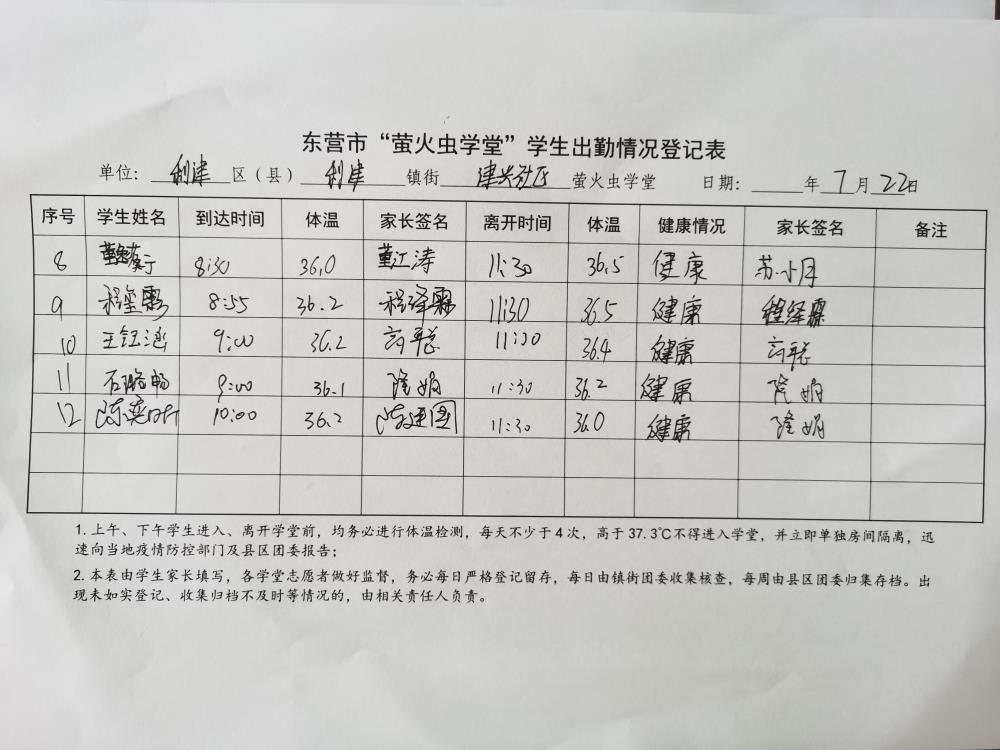 东营市“萤火虫学堂”学生出勤情况登记表
单位：利津区（县）利津镇街津兴社区萤火虫学堂 日期：____年7月22日
序号 学生姓名 到达时间 体温 家长签名 离开时间 体温 健康情况 家长签名 备注
8 8:30 36.0 董江涛 11:30 36.5 健康 苏小月
9 程奎霖 8:55 36.2 程泽霖 11:30 36.5 健康 程泽霖
10 王钰涵 9:00 36.2 11:30 36.4 健康
11 9:00 36.1 隆娟 11:30 36.2 健康 隆娟
12 陈奕昕 10:00 36.2 陈建国 11:30 36.0 健康 隆娟
1.上午、下午学生进入、离开学堂前，均务必进行体温检测，每天不少于4次，高于37.3℃不得进入学堂，并立即单独房间隔离，迅
速向当地疫情防控部门及县区团委报告；
2.本表由学生家长填写，各学堂志愿者做好监督，务必每日严格登记留存，每日由镇街团委收集核查，每周由县区团委归集存档。出
现未如实登记、收集归档不及时等情况的，由相关责任人负责。